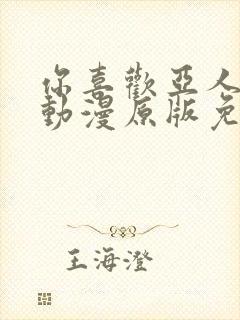 你喜歡亞人
動漫原版免
王海澄